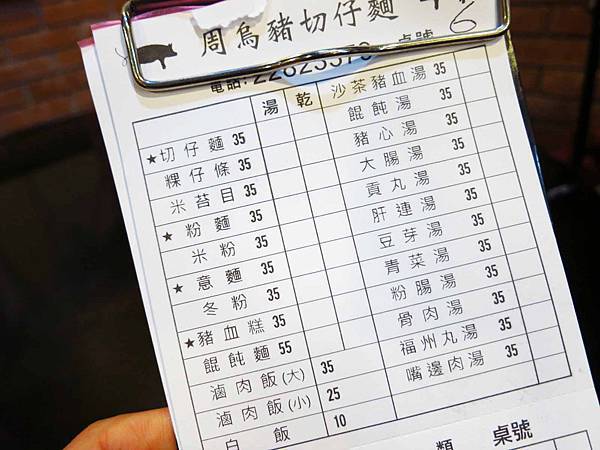 周烏豬切仔麵
6
電話:22623375
桌號
湯 乾
★切仔麵 35
粿仔條 35
米苔目 35
★粉麵 35
米粉 35
★意麵 35
冬粉 35
★豬血糕 35
餛飩麵 55
滷肉飯(大) 35
滷肉飯(小) 25
白飯 10
沙茶豬血湯 35
餛飩湯 35
豬心湯 35
大腸湯 35
貢丸湯 35
肝連湯 35
豆芽湯 35
青菜湯 35
粉腸湯 35
骨肉湯 35
福州丸湯 35
嘴邊肉湯 35
類 桌號